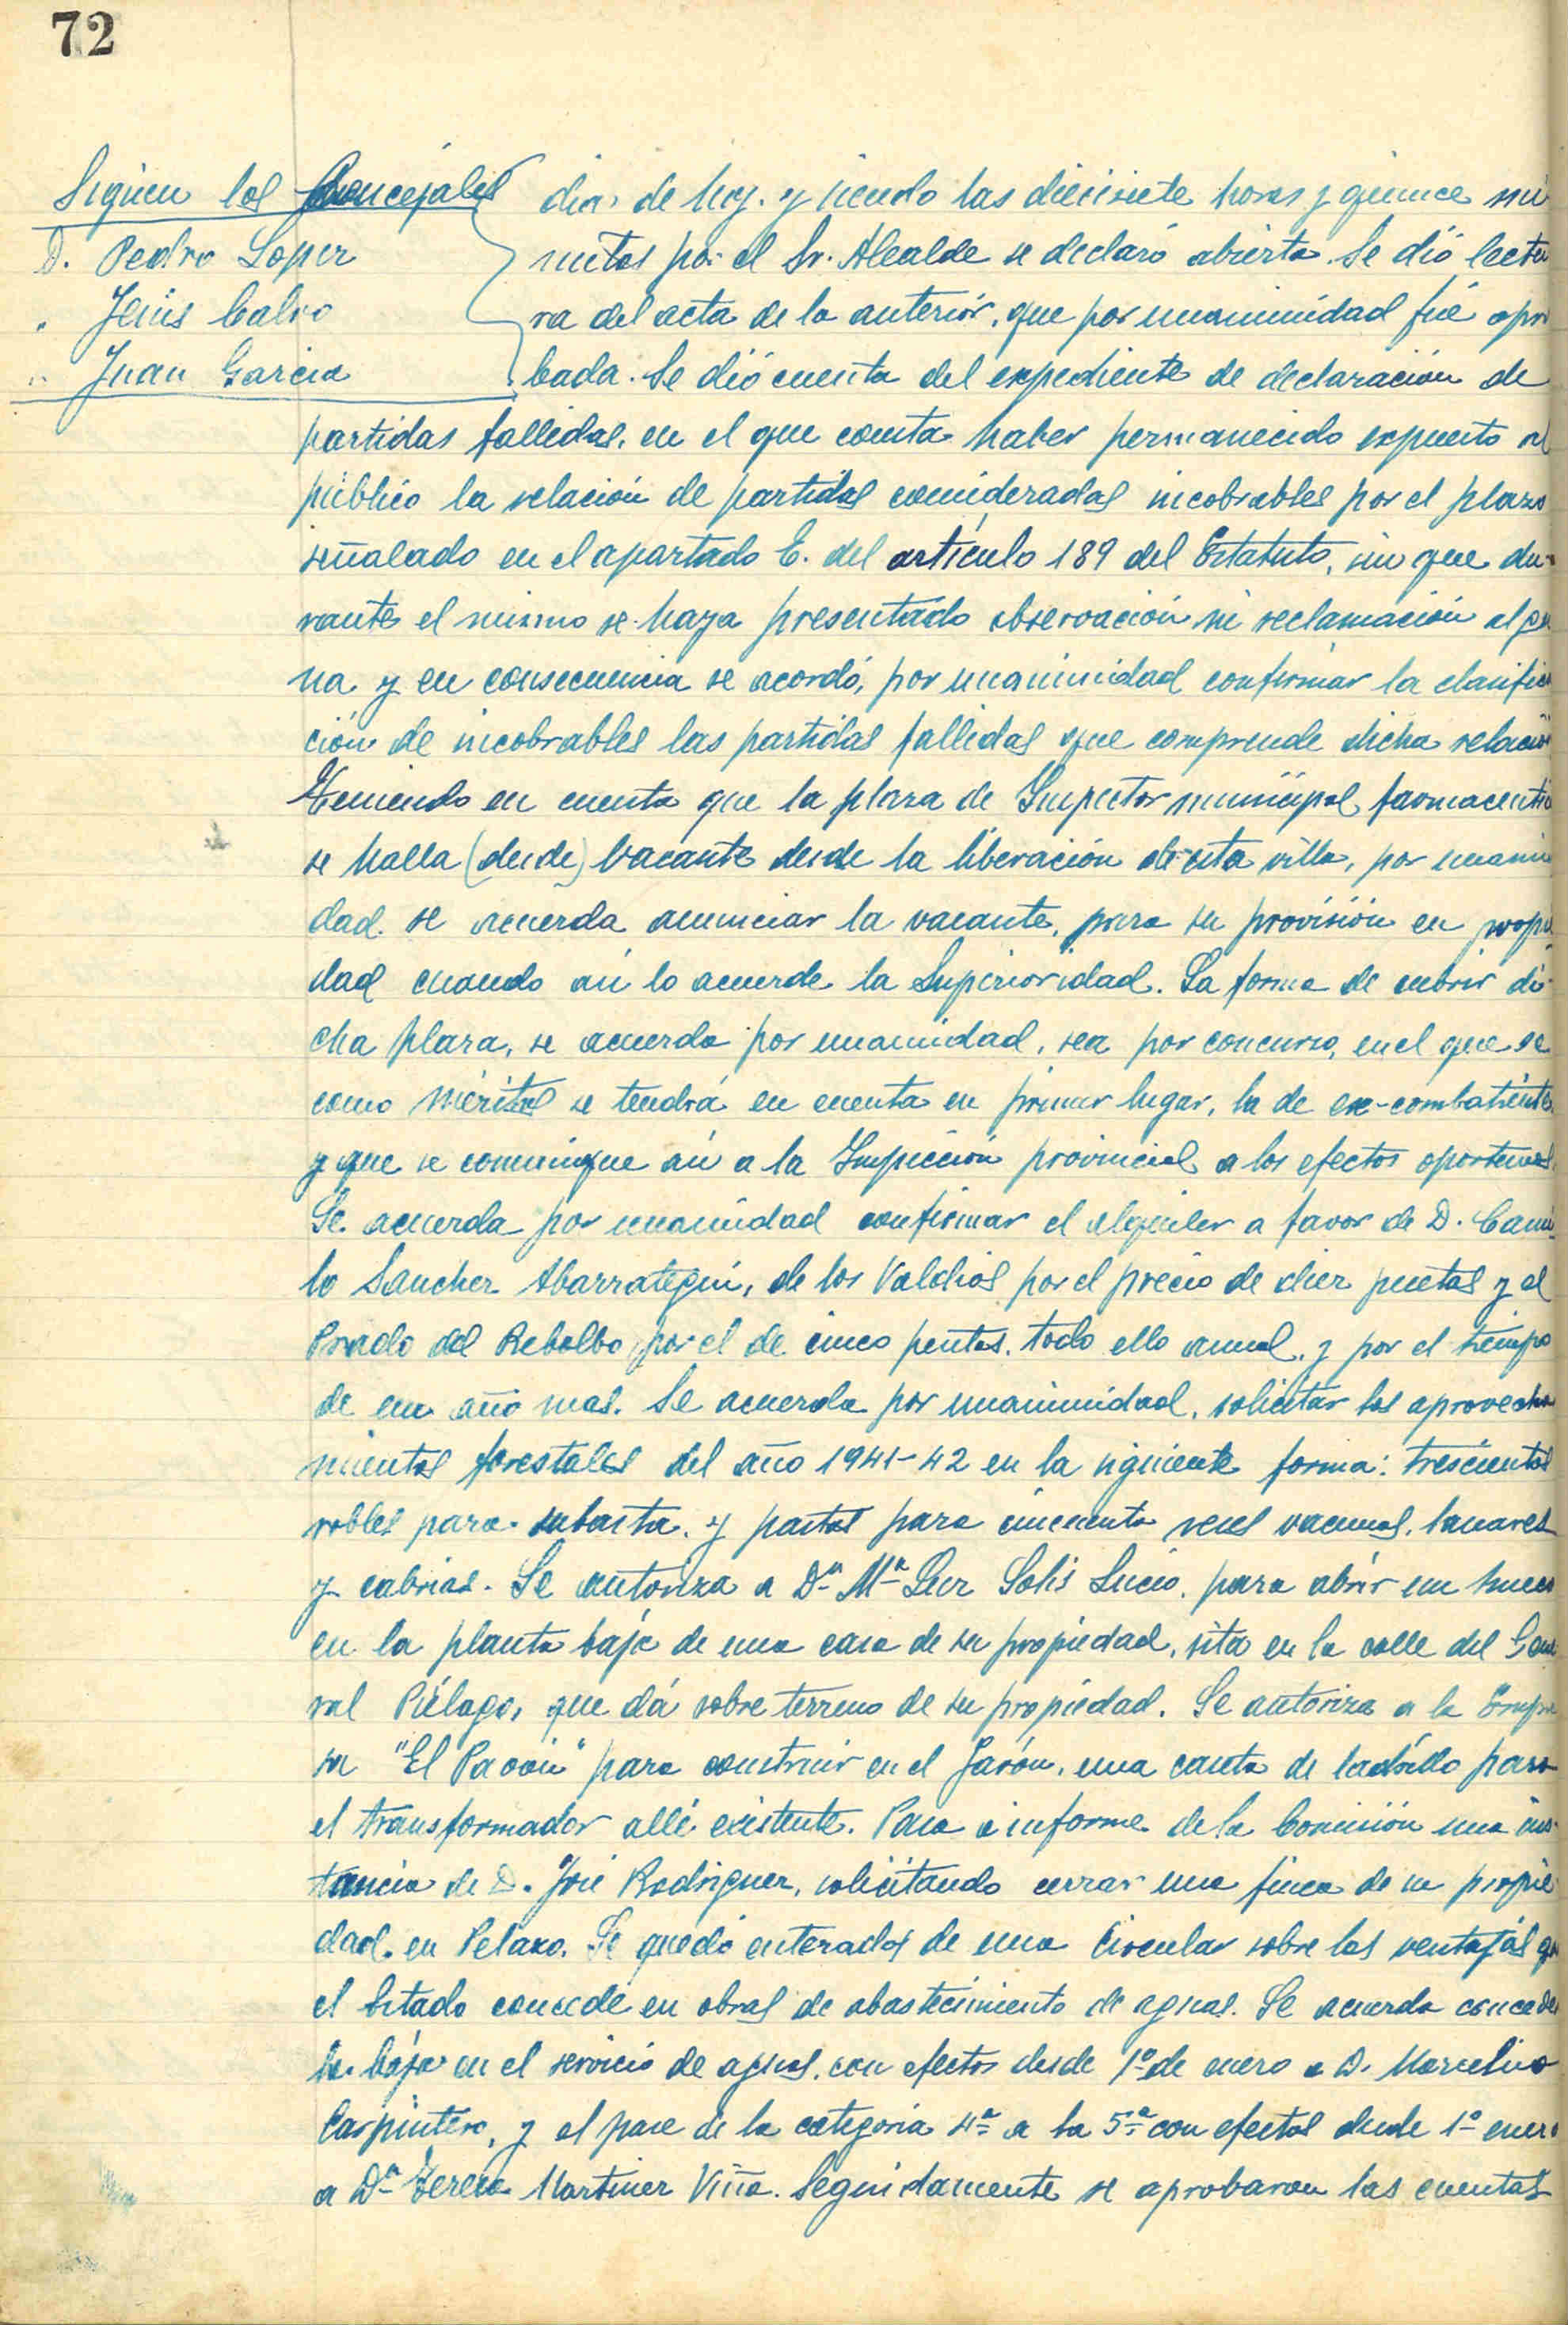 72
Siguen los Concejales
D. Pedro Lopez
" Jesús Calvo
" Juan Garcia
dia de hoy. y siendo las diecisiete horas y quince mi
nutos por el Sr. Alcalde se declaró abierta. Se dió lectu
ra del acta de la anterior, que por unanimidad fué apro
bada. Se dió cuenta del expediente de declaración de
partidas fallidas, en el que consta haber permanecido expuesto al
público la relación de partidas consideradas incobrables por el plazo
señalado en el apartado E. del artículo 189 del Estatuto, sin que du-
rante el mismo se haya presentado observación ni reclamación algu
na y en consecuencia se acordó, por unanimidad confirmar la clasifica
ción de incobrables las partidas fallidas que comprende dicha relación
Teniendo en cuenta que la plaza de Inspector municipal farmaceutico
se halla (desde) vacante desde la liberación de esta villa, por unanimi
dad se acuerda anunciar la vacante, para su provisión en propie
dad cuando así lo acuerde la Superioridad. La forma de cubrir di-
cha plaza, se acuerda por unanimidad, sea por concurso, en el que se
como méritos se tendrá en cuenta en primer lugar, la de ex-combatiente
y que se comunique así a la Inspección provincial a los efectos oportunos
Se acuerda por unanimidad confirmar el alquiler a favor de D. Cami-
lo Sanchez Abarrategui, de los Valdios por el precio de diez pesetas y el
Prado del Rebolbo, por el de cinco pesetas, todo ello anual, y por el tiempo
de un año mas. Se acuerda por unanimidad, solicitar los aprovecha
mientos forestales del año 1941-42 en la siguiente forma: trescientos
robles para subasta, y pastos para cincuenta reses vacunas, lanares
y cabrias. Se autoriza a Dª Mª Luz Solis Lucio, para abrir un hueco
en la planta baja de una casa de su propiedad, sita en la calle del Gene
ral Piélago, que dá sobre terreno de su propiedad. Se autoriza a la Empre
sa "El Pavón" para construir en el Jarón, una caseta de ladrillo para
el transformador allí existente. Pasa a informe de la Comisión una ins-
tancia de D. José Rodriguez, solicitando cerrar una finca de su propie
dad en Pelaxo. Se quedó enterados de una Circular sobre las ventajas que
el Estado concede en obras de abastecimiento de aguas. Se acuerda conceder
la baja en el servicio de aguas, con efectos desde 1º de enero a D. Marcelino
Carpintero, y el pase de la categoria 4ª a la 5ª con efectos desde 1º enero
a Dª Teresa Martinez Viña. Seguidamente se aprobaron las cuentas